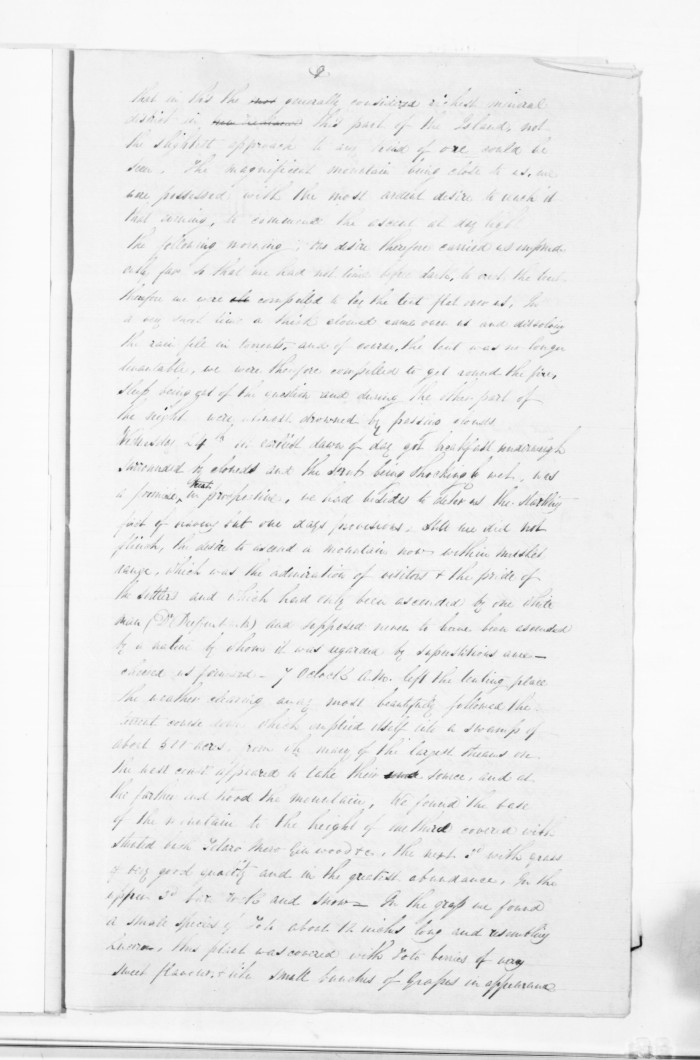 9
that in this the generally considered richest mineral
district in this part of the Island, not
the slightest approach to any kind of ore could be
seen. The magnificent mountain being close to us, we
were possessed with the most ardent desire to reach it
that evening, to commence the ascent at day light
the following morning; the desire therefore carried us
only far so that we had not time before dark, to the tent
therefore we were compelled to lay the tent flat over us. In
a very short time a thick clowed came over us and dissolving
the rain fell in torrents, and of course, the tent was no longer
, we were therefore compelled to get round the fire,
sleep being out of the question and during the other part of
the night were almost drowned by passing clouds
Wednesday 24th in earliest dawn of day got breakfast underweigh
surrounded by clowds and the scrub being shocking wet, was
a promise, in perspective, we had besides to the startling
fact of having but one days provisions. Still we did not
flinch, the desire to ascend a mountain now within musket
range, which was the admiration of visitors & the pride of
the settlers and which had only been ascended by one white
man (Dr ) and supposed never to have been ascended
by a native by whom it was regarded by superstitious awe—
cheered us forward— 7 Oclock A.M. left the tenting place
the weather clearing away most beautifully followed the
course which emptied itself into a swamp of
about 500 acres, from it, many of the largest streams on
the west coast appeared to take their source, and at
the farther end stood the mountain, We found the base
of the mountain to the height of one third covered with
stunted bush Totara &c. the next 3d with grass
of very good quality and in the greatest abundance. In the
upper 3d Rock and Snow— In the grass we found
a small species of Toto about 12 inches long and resembling
, this plant was covered with Toto berries of very
sweet flavour & like small bunches of Grapes in appearance